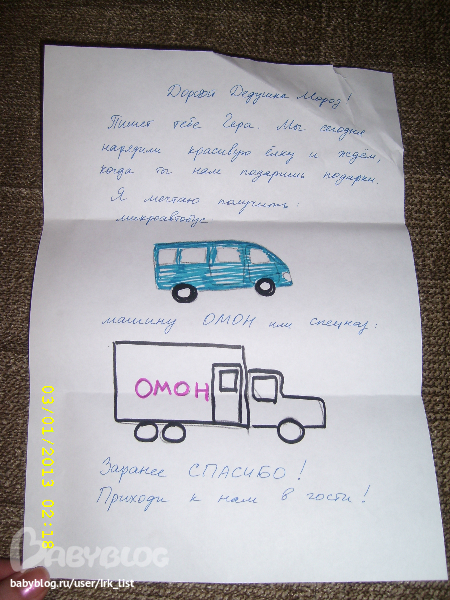 Дорогой Дедушка Мороз!
Пишет тебе Гера. Мы сегодня
нарядили красивую ёлку и ждём,
когда ты нам подаришь подарки.
Я мечтаю получить:
микроавтобус
машину ОМОН или спецназ:
ОМОН
Заранее СПАСИБО!
Приходи к нам в гости!
03/01/2013 02:18
BABYBLOG
babyblog.ru/user/Irk_tIst